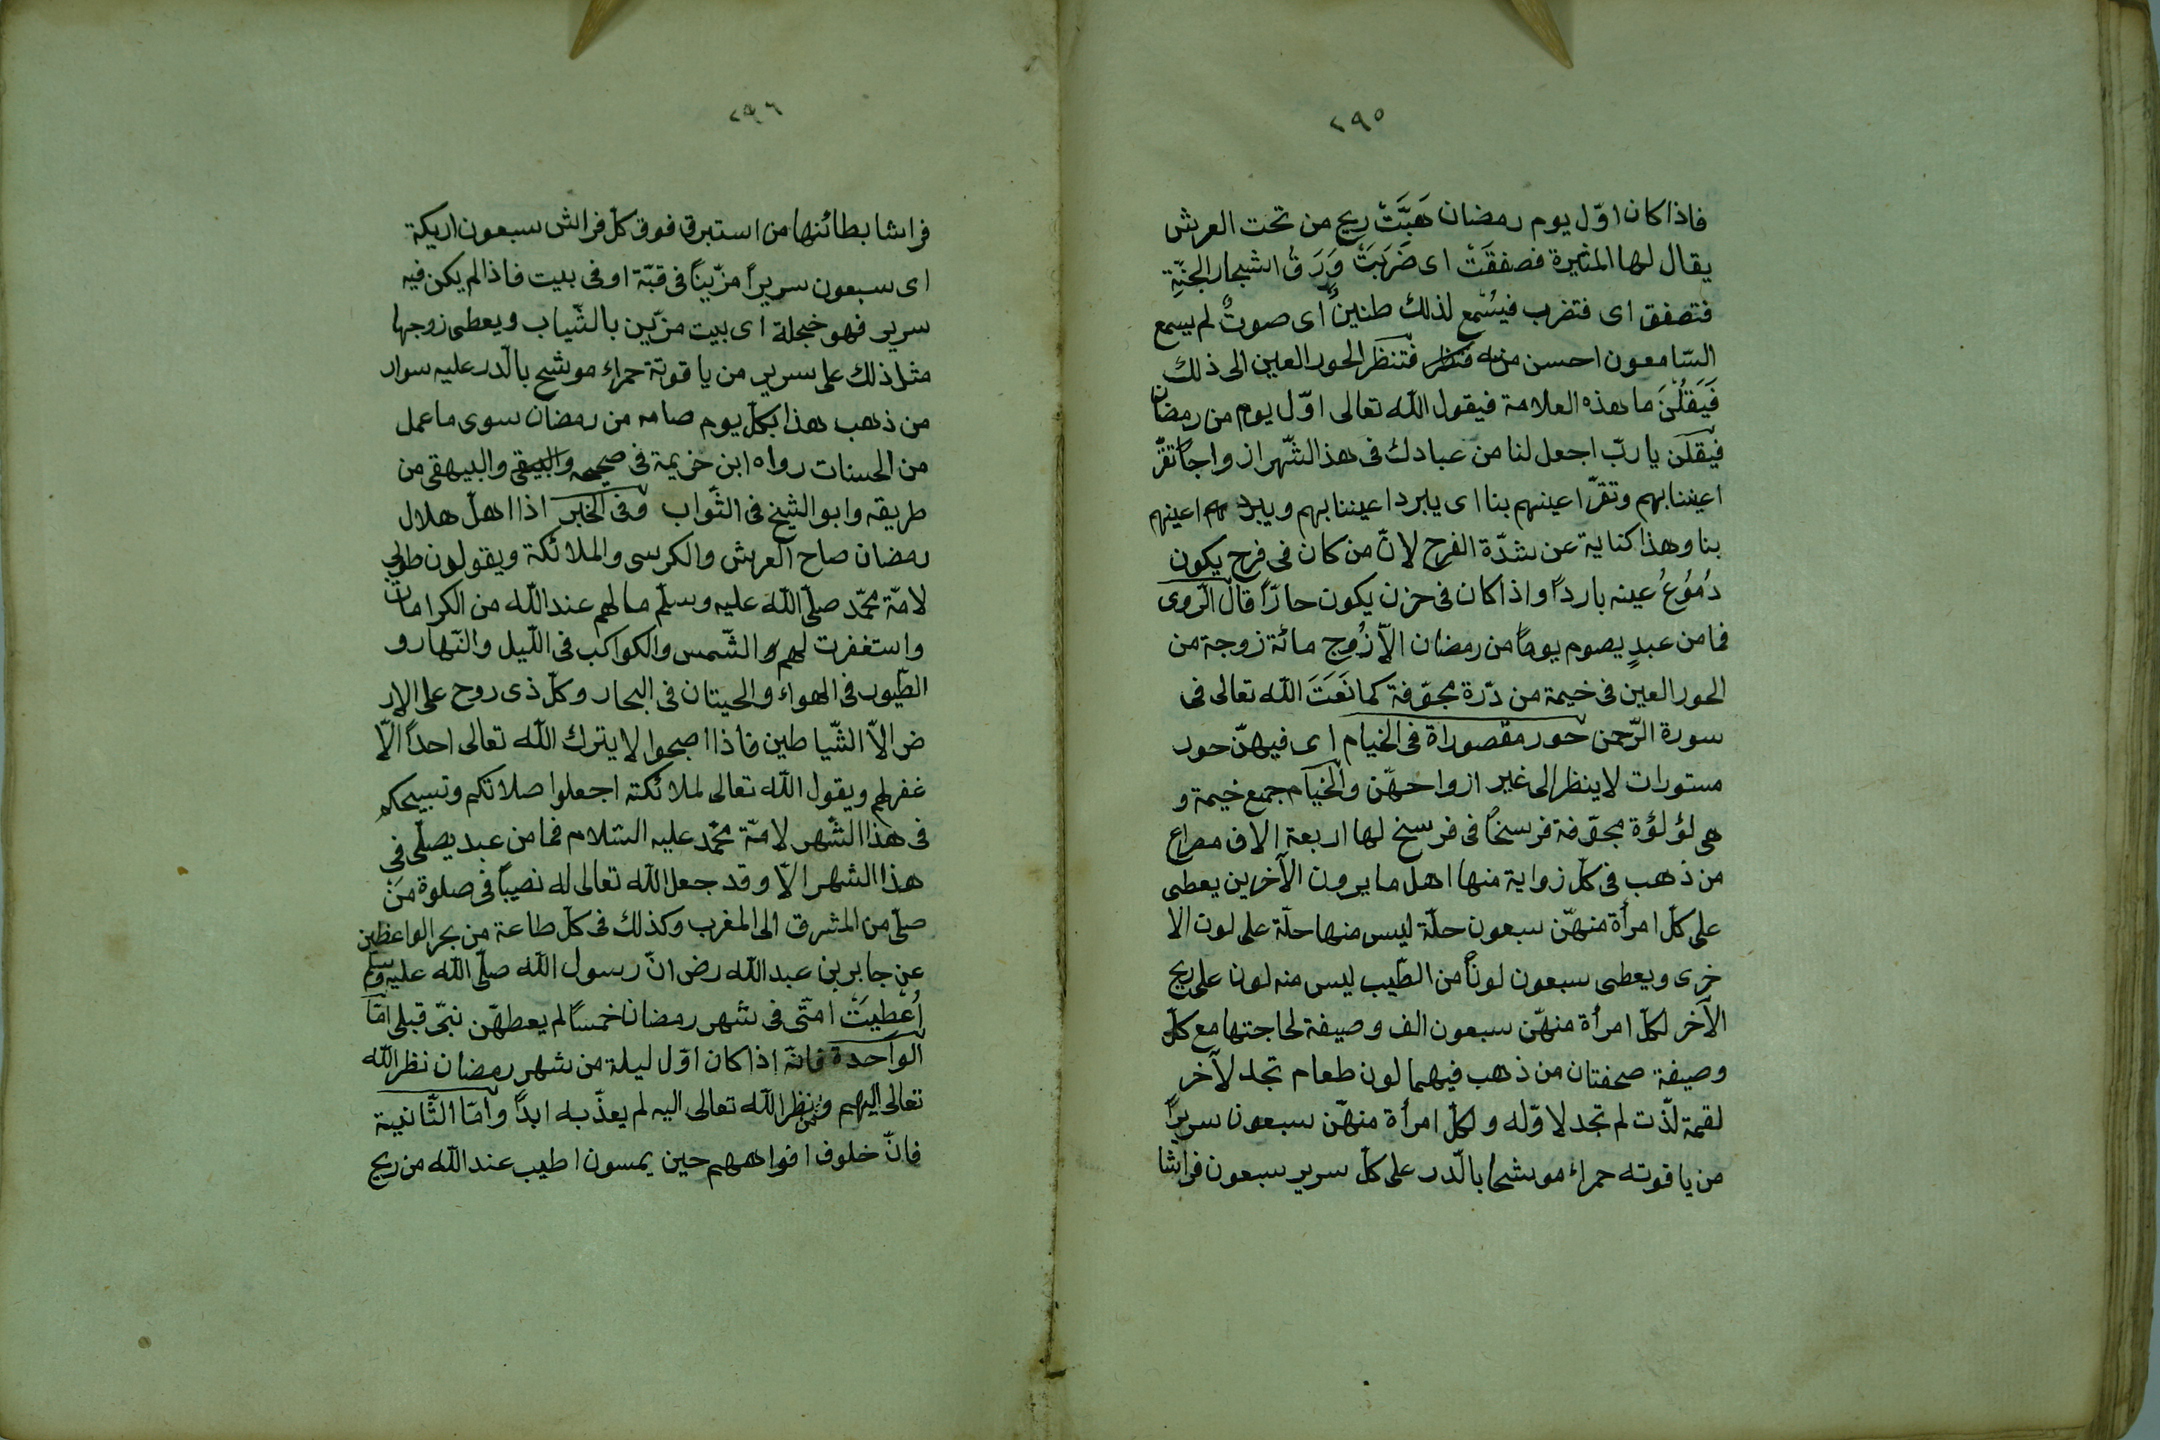 ٢٩٥
فاذا كان اوّل يوم رمضان هَبَّتْ ريح من تحت العرش
يقال لها المثيرة فصفقَتْ اى ضَرَبَتْ وَرَقُ اشجار الجنّةِ
فتصفق اى فتضرب فيُسْمع لذلك طنينٌ اى صوتٌ لم يسمع
السّامعون احسن منه فتنظر الحور العين الى ذلك
فَيَقُلْنَ ما هذه العلامة فيقول اللّه تعالى اوّل يوم من رمضان
فيقلَن يا ربّ اجعل لنا من عبادك فى هذ الشّهر ازواجًا تقرّ
اعيننا بهم وتقرّ اعينهم بنا اى يابرد اعيننا بهم ويبرد اعينهم
بنا وهذا كناية عن شدّة الفرح لانّ من كان فى فرح يكون
دُمُوعُ عينه باردًا واذا كان فى حزن يكون حارّا قال الرّوى
فما من عبدٍ يصوم يومًا من رمضان الاّ زُوِج مائة زوجة من
الحور العين فى خيمة من دّرة مجوّفة كما نَعَتَ اللّه تعالى فى
سورة الرّحمن حور مقصوراة فى الخيام اى فيهنّ حور
مستورات لا ينظر الى غير ازواحهّن والخيام جمع خيمة و
هى لؤلؤة مجوّفة فرسخًا فى فرسخ لها اربعة الاف مصراع
من ذهب فى كلّ زواية منها اهل ما يرون الآخرين يعطى
على كلّ امرأة منهّن سبعون حلّة ليس منها حلّة على لون الا
خرى ويعطى سبعون لونًا من الطّيب ليس منه لون على ريح
الآخر لكلّ امرأة منهّن سبعون الف وصيفة لحاجتها مع كلّ
وصيفة صحفتان من ذهب فيهما لون طعام تجد لآخر
لقمة لذّت لم تجد لاوّله ولكلّ امرأة منهّن سبعون سريرًا
من ياقوته حمراء موشحا بالّدر على كلّ سرير سبعون فراشا
٢٩٦
فراشا بطائنها من استبرق فوق كلّ فراش سبعون اريكة
اى سبعون سريرًا مزّينًا فى قبّة او فى بيت فاذا لم يكن فيه
سرير فهو خجلة اى بيت مزّين بالثّياب ويعطى زوجها
مثل ذلك على سرير من ياقوتة حمراء موشح بالّدر عليه سوار
من ذهب هذا بكلّ يوم صامه من رمضان سوى ما عمل
من الحسنات رواه ابن خزيمة فى صحيحه والبيقى والبيهقى من
طريقه وابو الشّيخ فى الثّواب وفى الخبر اذا اهلّ هلال
رمضان صاح العرش والكرسى والملائكة ويقولون طوبى
لامّة محمّد صلّى اللّه عليه وسلّم ما لهم عند اللّه من الكرامات
واستغفرت لهم الشّمس والكواكب فى اللّيل والنّهار و
الطّيور فى الهواء والحيتان فى البحار وكلّ ذى روح على الار
ض الاّ الشّياطين فاذا اصبحوا لا يترك اللّه تعالى احدًا الاّ
غفر لهم ويقول اللّه تعالى لملائكته اجعلوا صلاتكم وتسبيحكم
فى هذا الشّهر لامّة محمّد عليه السّلام فما من عبد يصلّى فى
هذا الشهر الاّ وقد جعل اللّه تعالى له نصيبًا فى صلوة مَنْ
صلّى من المشرق الى المغرب وكذلك فى كلّ طاعة من بحر الواعظين
عن جابر بن عبد اللّه رض انّ رسول اللّه صلّى اللّه عليه وسلّم
أُعْطِيَتْ امّتى فى شهر رمضان خمسًا لم يعطهّن نبىّ قبلى امّا
الواحدة فانّه اذا كان اوّل ليلة من شهر رمضان نظر اللّه
تعالى اليهم ومن نظر اللّه تعالى اليه لم يعذّبه ابدًا وامّا الثّانية
فانّ خلوف افواههم حين يمسون اطيب عند اللّه من ريح